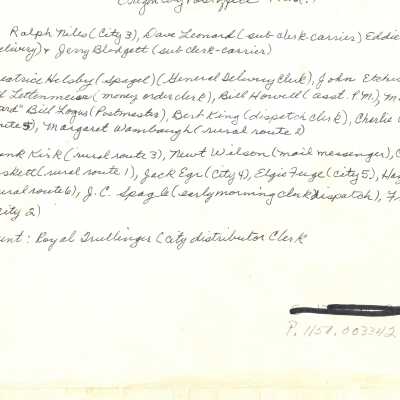 Ralph Niles (City 3), Dave Leonard (sub clerk-carrier) Eddie
delivery) & Jerry Blodgett (sub clerk-carrier)
eatrice Helsby (Spagel) (General Delivery Clerk), John
d Lettenmeier (money order clerk), Bill Howell (asst. P.M.), M
ard" Bill Logus (Postmaster), Bert King (dispatch clerk), Charlie
route 5), Margaret Wambaugh (rural route 2)
ank Kirk (rural route 3), Newt Wilson (mail messenger), C
skett (rural route 1), Jack Egr (City 4), Elgie Fuge (City 5), Ha
ural route 6), J.C. Spagle (early morning clerk dispatch), Fr
City 2)
unt: Royal Trullinger (City distributor Clerk
P. 1151. 003342